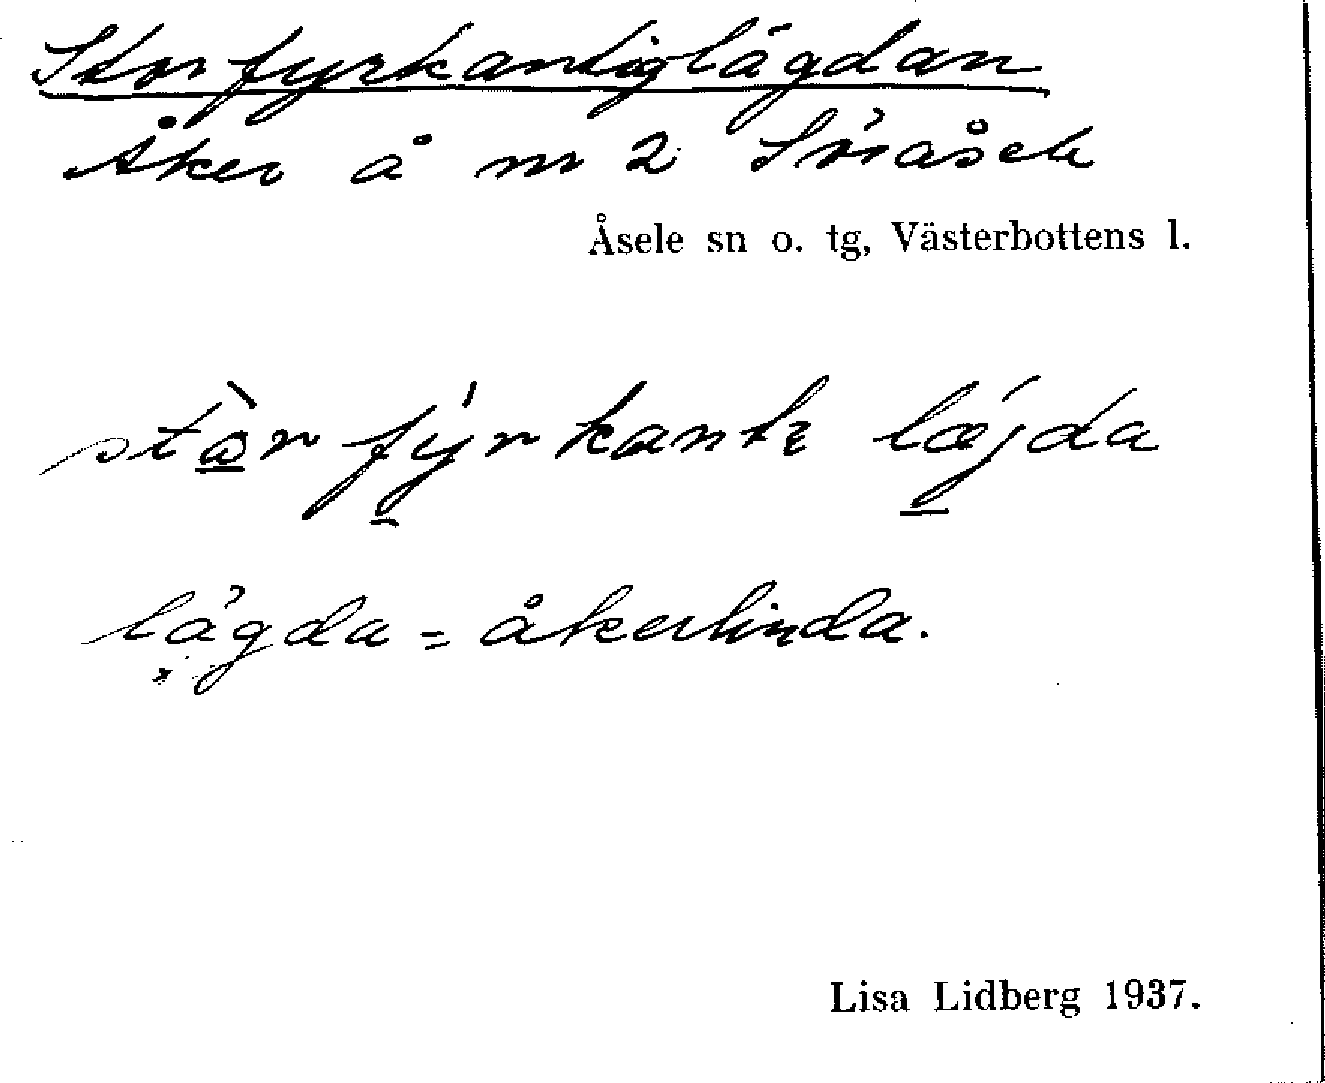 Storfyrkantiglägdan
Åker å nr 2 Söråsele
Åsele sn o. tg, Västerbottens l.
stòr fýrkantɛ lǽjda
lägda = åkerlinda.
Lisa Lidberg 1937.